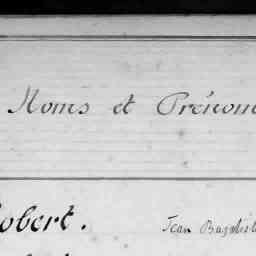 Noms et Prénom
obert. Jean Baptist